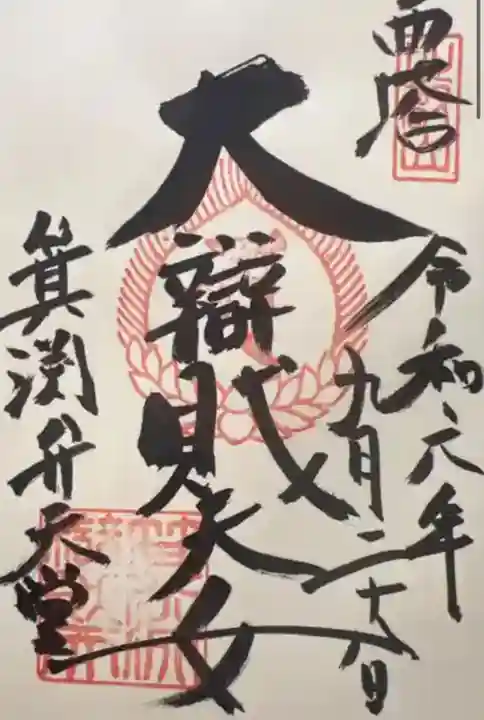 奉拝
令和六年
九月二十八日
大辯財天女
箕渕弁天堂